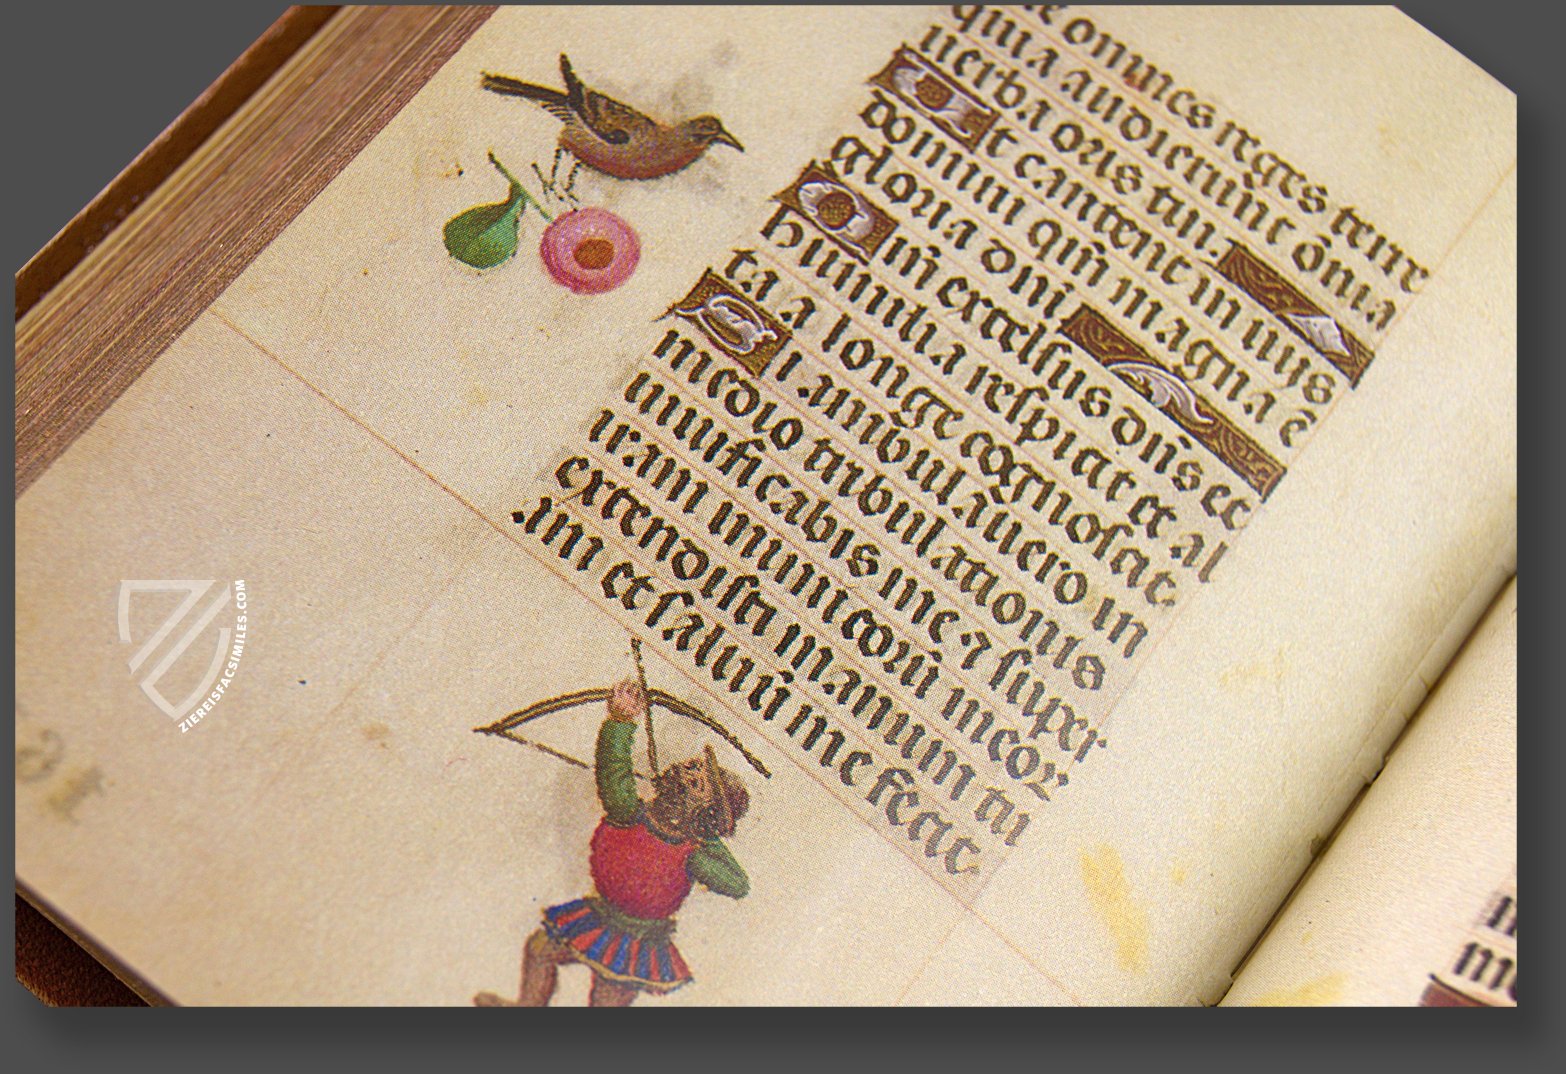 te omnes reges terre
quia audierūt ōnia
uerba oris tui.
Et cantent in uijs
domini qm̄ magna ē
gloria dn̄i
Qm̄ excelsus dn̄s et
humilia respicit et al
ta a longe cognoscit.
Si ambulauero in
medio tribulationis
uiuificabis me. ⁊ super
iram inimicorū meoꝝ
extendisti manum tu
am et saluū me fecit.
ZIEREISFACSIMILES.COM